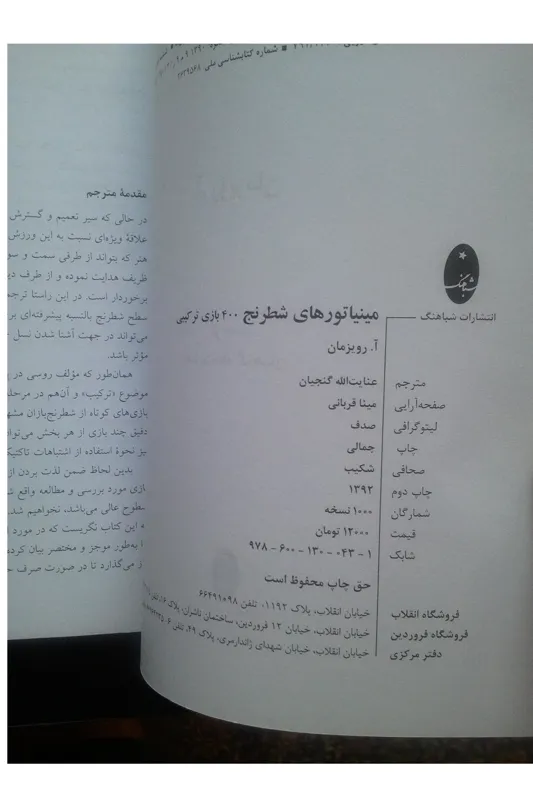 شماره کتابشناسی ملی ۲۶۳۹۵۴۸
شباهنگ
انتشارات شباهنگ
مینیاتورهای شطرنج ۴۰۰ بازی ترکیبی
آ. رویزمان
مترجم عنایت‌الله گنجیان
صفحه‌آرایی مینا قربانی
لیتوگرافی صدف
چاپ جمالی
صحافی شکیب
چاپ دوم ۱۳۹۲
شمارگان ۱۰۰۰ نسخه
قیمت ۱۲۰۰۰ تومان
شابک ۱ - ۰۴۳ - ۱۳۰ - ۶۰۰ - ۹۷۸
حق چاپ محفوظ است
فروشگاه انقلاب خیابان انقلاب، پلاک ۱۱۹۲، تلفن ۶۶۴۹۱۰۹۸
فروشگاه فروردین خیابان انقلاب، خیابان ۱۲ فروردین، ساختمان ناشران، پلاک
دفتر مرکزی خیابان انقلاب، خیابان شهدای ژاندارمری، پلاک ۴۹، تلفن
مقدمهٔ مترجم
در حالی که سیر تعمیم و گسترش
علاقهٔ ویژه‌ای نسبت به این ورزش
هنر که بتواند از طرفی سمت و سو
ظریف هدایت نموده و از طرف
برخوردار است. در این راستا
سطح شطرنج بالنسبه پیشرفته‌ای
می‌تواند در جهت آشنا شدن نسل
مؤثر باشد.
همان‌طور که مؤلف روسی در
موضوع «ترکیب» و آن‌هم در
بازی‌های کوتاه از شطرنج‌بازان
دقیق چند بازی از هر بخش
نیز نحوهٔ استفاده از اشتباهات
بدین لحاظ ضمن لذت بردن از
مورد بررسی و مطالعه واقع
عالی می‌باشد، نخواهیم شد.
این کتاب نگریست که در مورد
به‌طور موجز و مختصر بیان
می‌گذارد تا در صورت صرف